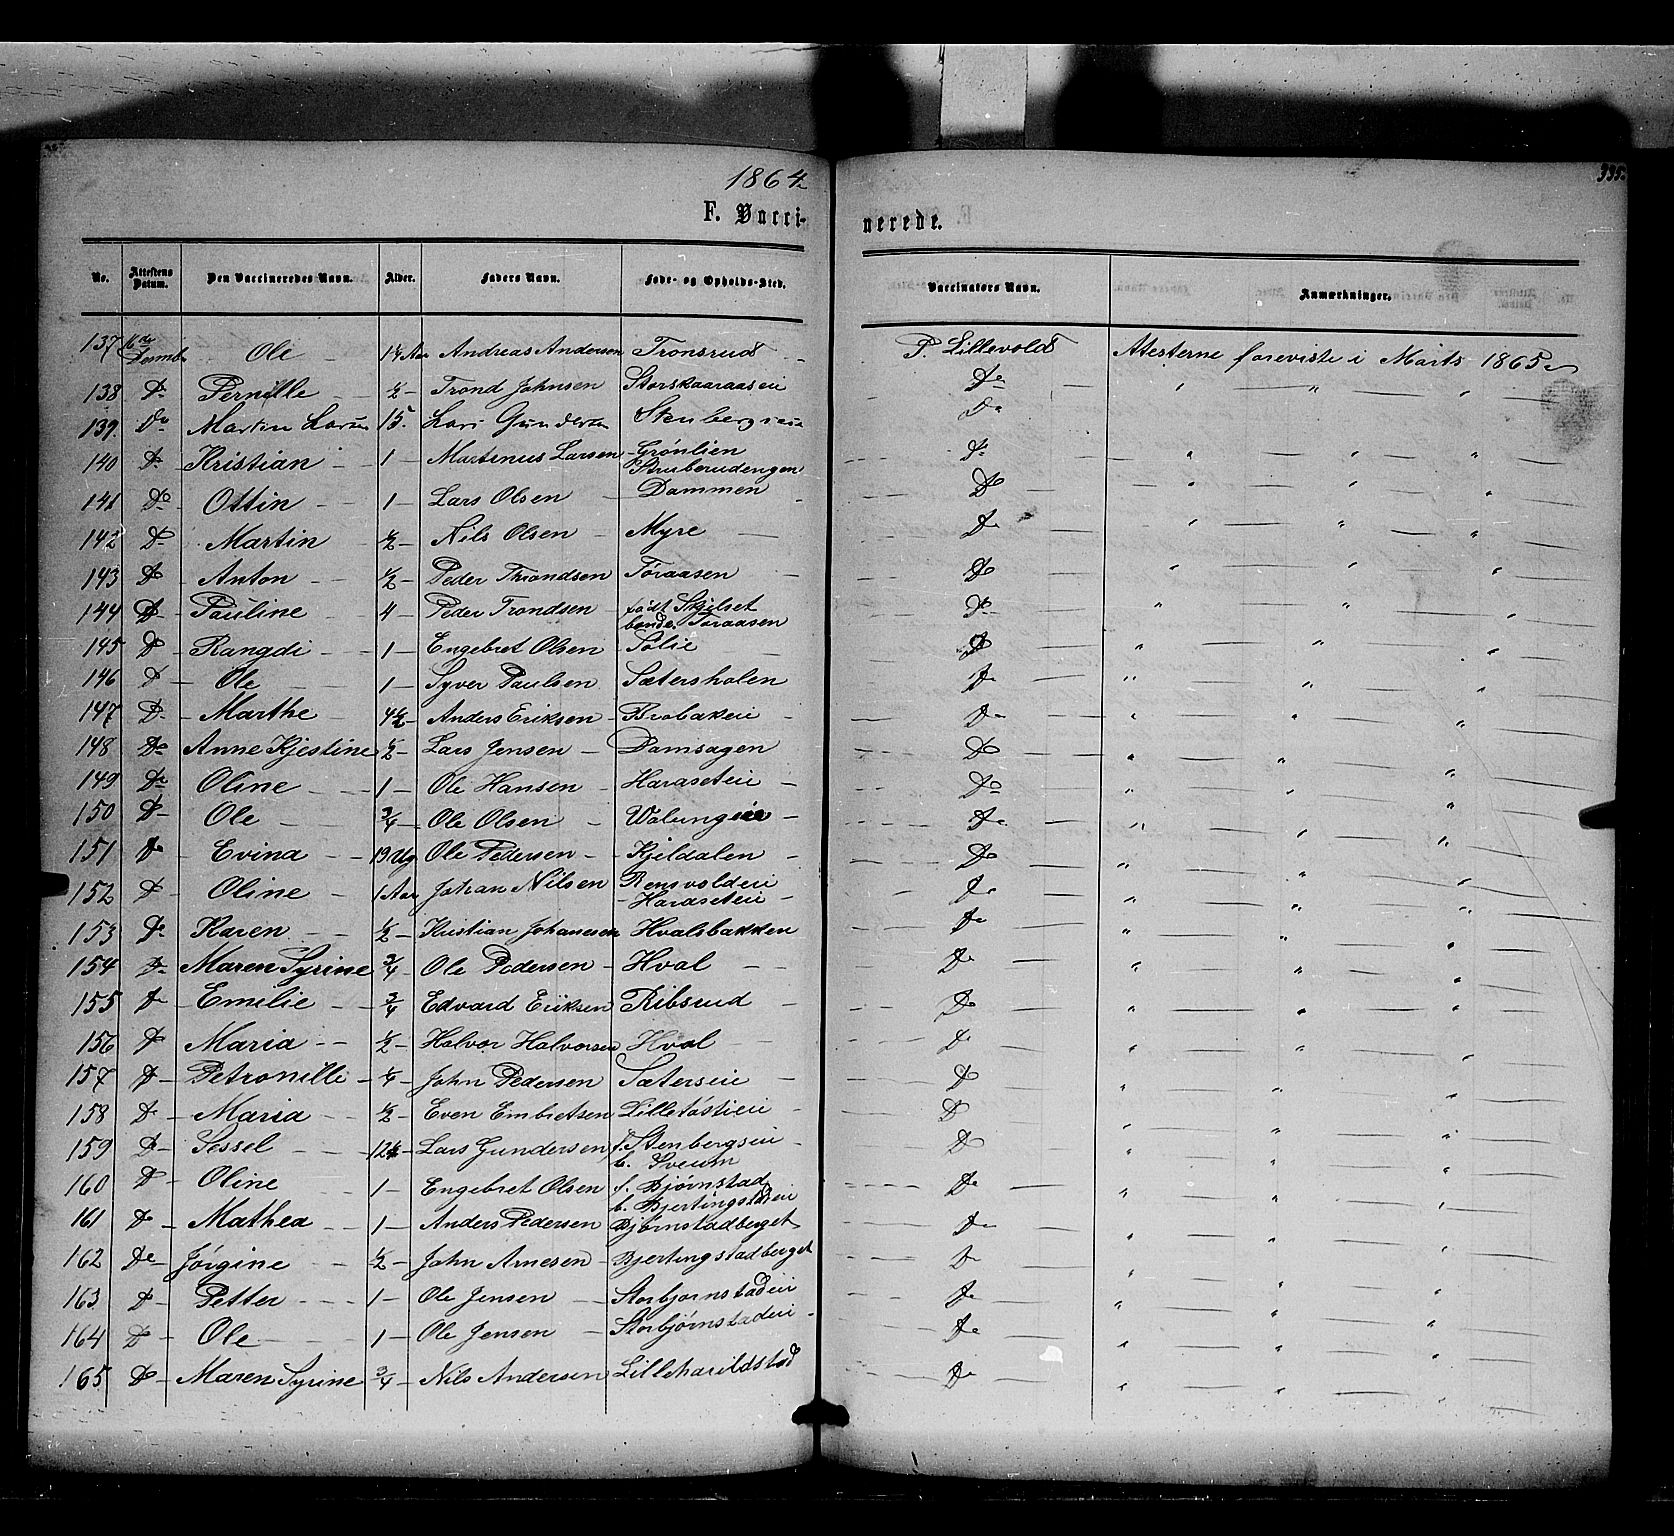 1864
335.
F. Vacci-
nerede.
No. Attestens Datum. Den Vaccineredes Navn. Alder. Faders Navn. Føde- og Opholds-Sted. Vaccinators Navn. Anmærkninger.
137 16de Decmb. Ole 1 1/4 Aar Andreas Andersen Tronsrud P. Lillevold Atesterne foreviste i Marts 1865
138 Do Pernille 1/2 Trond Johnsen Storskaaraaseie Do " " "
139. Do Martin Larsen 15. Lars Gundersen Stenbergseie Do
140 Do Kristian 1 Martinus Larsen Grønlien Do " " "
Struberudengen
141 Do Ottin 1 Lars Olsen Dammen Do " " "
142 Do Martin 1/2 Nils Olsen Myre Do " " "
143 Do Anton 1/2 Peder Throndsen Toraasen Do " " "
144 Do Pauline 4 Peder Trondsen født Skjelset Do " " "
boende. Toraasen
145 Do Rangdi 1 Engebret Olsen Solie Do " " "
146 Do Ole 1 Syver Paulsen Sætersholen Do " " "
147 Do Marthe 4 1/2 Anders Eriksen Brobakeie Do " " "
148 Do Anne Kjestine 1/2 Lars Jensen Damsagen Do " " "
149 Do Oline 1 Ole Hansen Haraseteie Do " " "
150 Do Ole 3/4 Ole Olsen Wolungeie Do " " "
151 Do Evina 19 Ug Ole Pedersen Kjeldalen Do " " "
152 Do Oline 1 Aar Johan Nilsen Rensvoldeie Do " " "
Haraseteie
153 Do Karen 1/2 Kristian Johanesen Hvalsbakken Do " " "
154 Do Maren Syrine 3/4 Ole Pedersen Hval Do " " "
155 Do Emilie 3/4 Edvard Eriksen Ribsrud Do " " "
156 Do Maria 1/2 Halvor Halvorsen Hval Do " " "
157 Do Petronille 1/4 John Pedersen Sæterseie Do " " "
158 Do Maria 1/2 Even Embretsen Lilletostieie Do " " "
159 Do Sessel 12 Lars Gundersen f. Stenbergseie Do " " "
b. Sveum
160 Do Oline 1 Engebret Olsen f. Bjørnstad Do " " "
b. Bjertingstadeie
161 Do Mathea 1 Anders Pedersen Bjørnstadberget Do " " "
162 Do Jørgine 1/2 John Arnesen Bjertingstadberget Do " " "
163 Do Petter 1 Ole Jensen Storbjornstadeie Do " " "
164 Do Ole 1 Ole Jensen Storbjørnstadeie Do " " "
165 Do Maren Syrine 3/4 Nils Andersen Lilleharildstad Do " " "